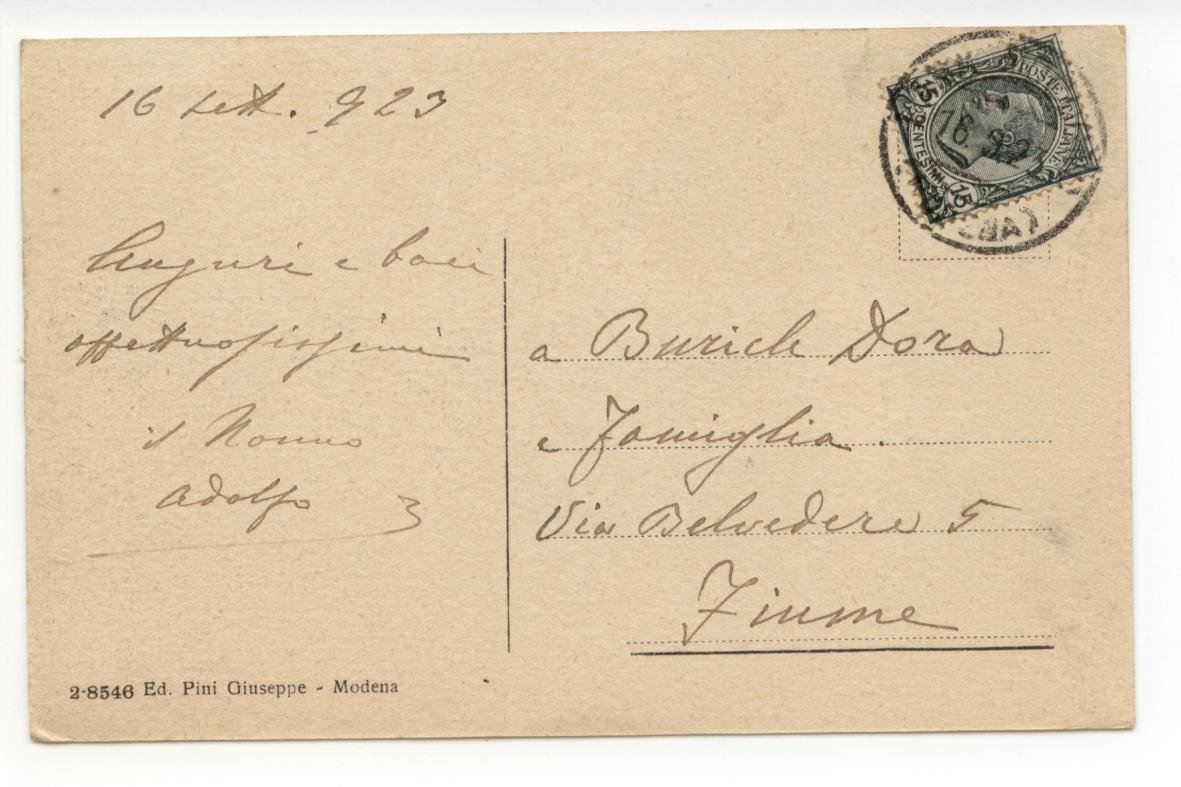 16 sett. 923
Auguri e baci
affettuosissimi
il Nonno
Adolfo
2-8546 Ed. Pini Giuseppe - Modena
POSTE ITALIANE
15 CENTESIMI 15
16.9.2
ENA)
a Burich Dora
e Famiglia.
Via Belvedere 5
Fiume